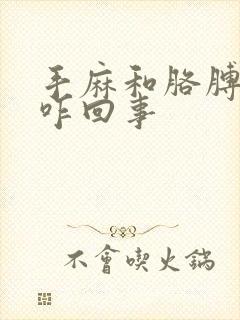 手麻和胳膊
咋回事
不會喫火鍋